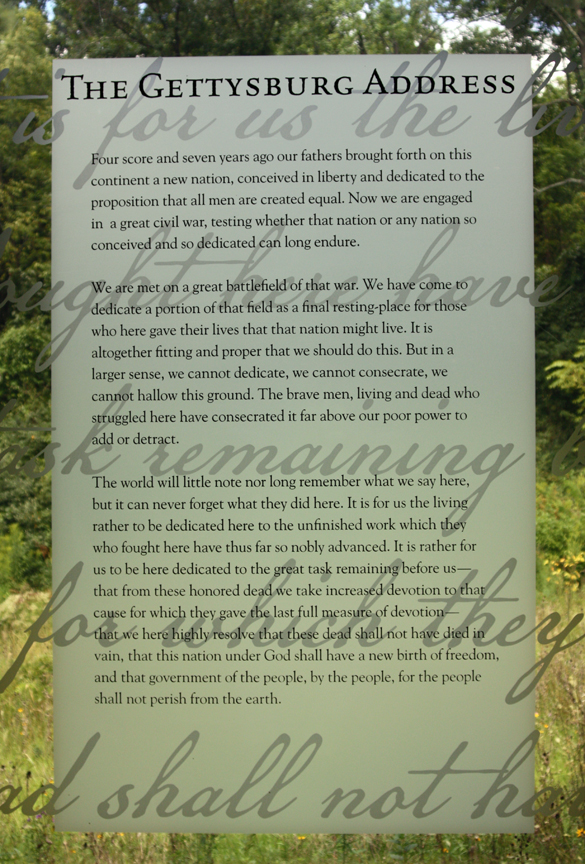 The Gettysburg Address
is for us the li
Four score and seven years ago our fathers brought forth on this
continent a new nation, conceived in liberty and dedicated to the
proposition that all men are created equal. Now we are engaged
in a great civil war, testing whether that nation or any nation so
conceived and so dedicated can long endure.
ought here have
We are met on a great battlefield of that war. We have come to
dedicate a portion of that field as a final resting-place for those
who here gave their lives that that nation might live. It is
altogether fitting and proper that we should do this. But in a
larger sense, we cannot dedicate, we cannot consecrate, we
cannot hallow this ground. The brave men, living and dead who
struggled here have consecrated it far above our poor power to
add or detract.
ask remaining
The world will little note nor long remember what we say here,
but it can never forget what they did here. It is for us the living
rather to be dedicated here to the unfinished work which they
who fought here have thus far so nobly advanced. It is rather for
us to be here dedicated to the great task remaining before us—
that from these honored dead we take increased devotion to that
cause for which they gave the last full measure of devotion—
that we here highly resolve that these dead shall not have died in
vain, that this nation under God shall have a new birth of freedom,
and that government of the people, by the people, for the people
shall not perish from the earth.
for which they
ad shall not ha